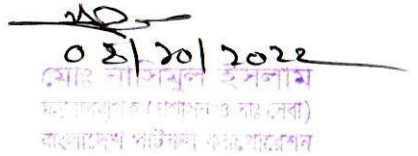 ০৪/১০/২০২২
মোঃ নাসিমুল ইসলাম
মহাব্যবস্থাপক (প্রশাসন ও সাঃ সেবা)
বাংলাদেশ পাটকল করপোরেশন